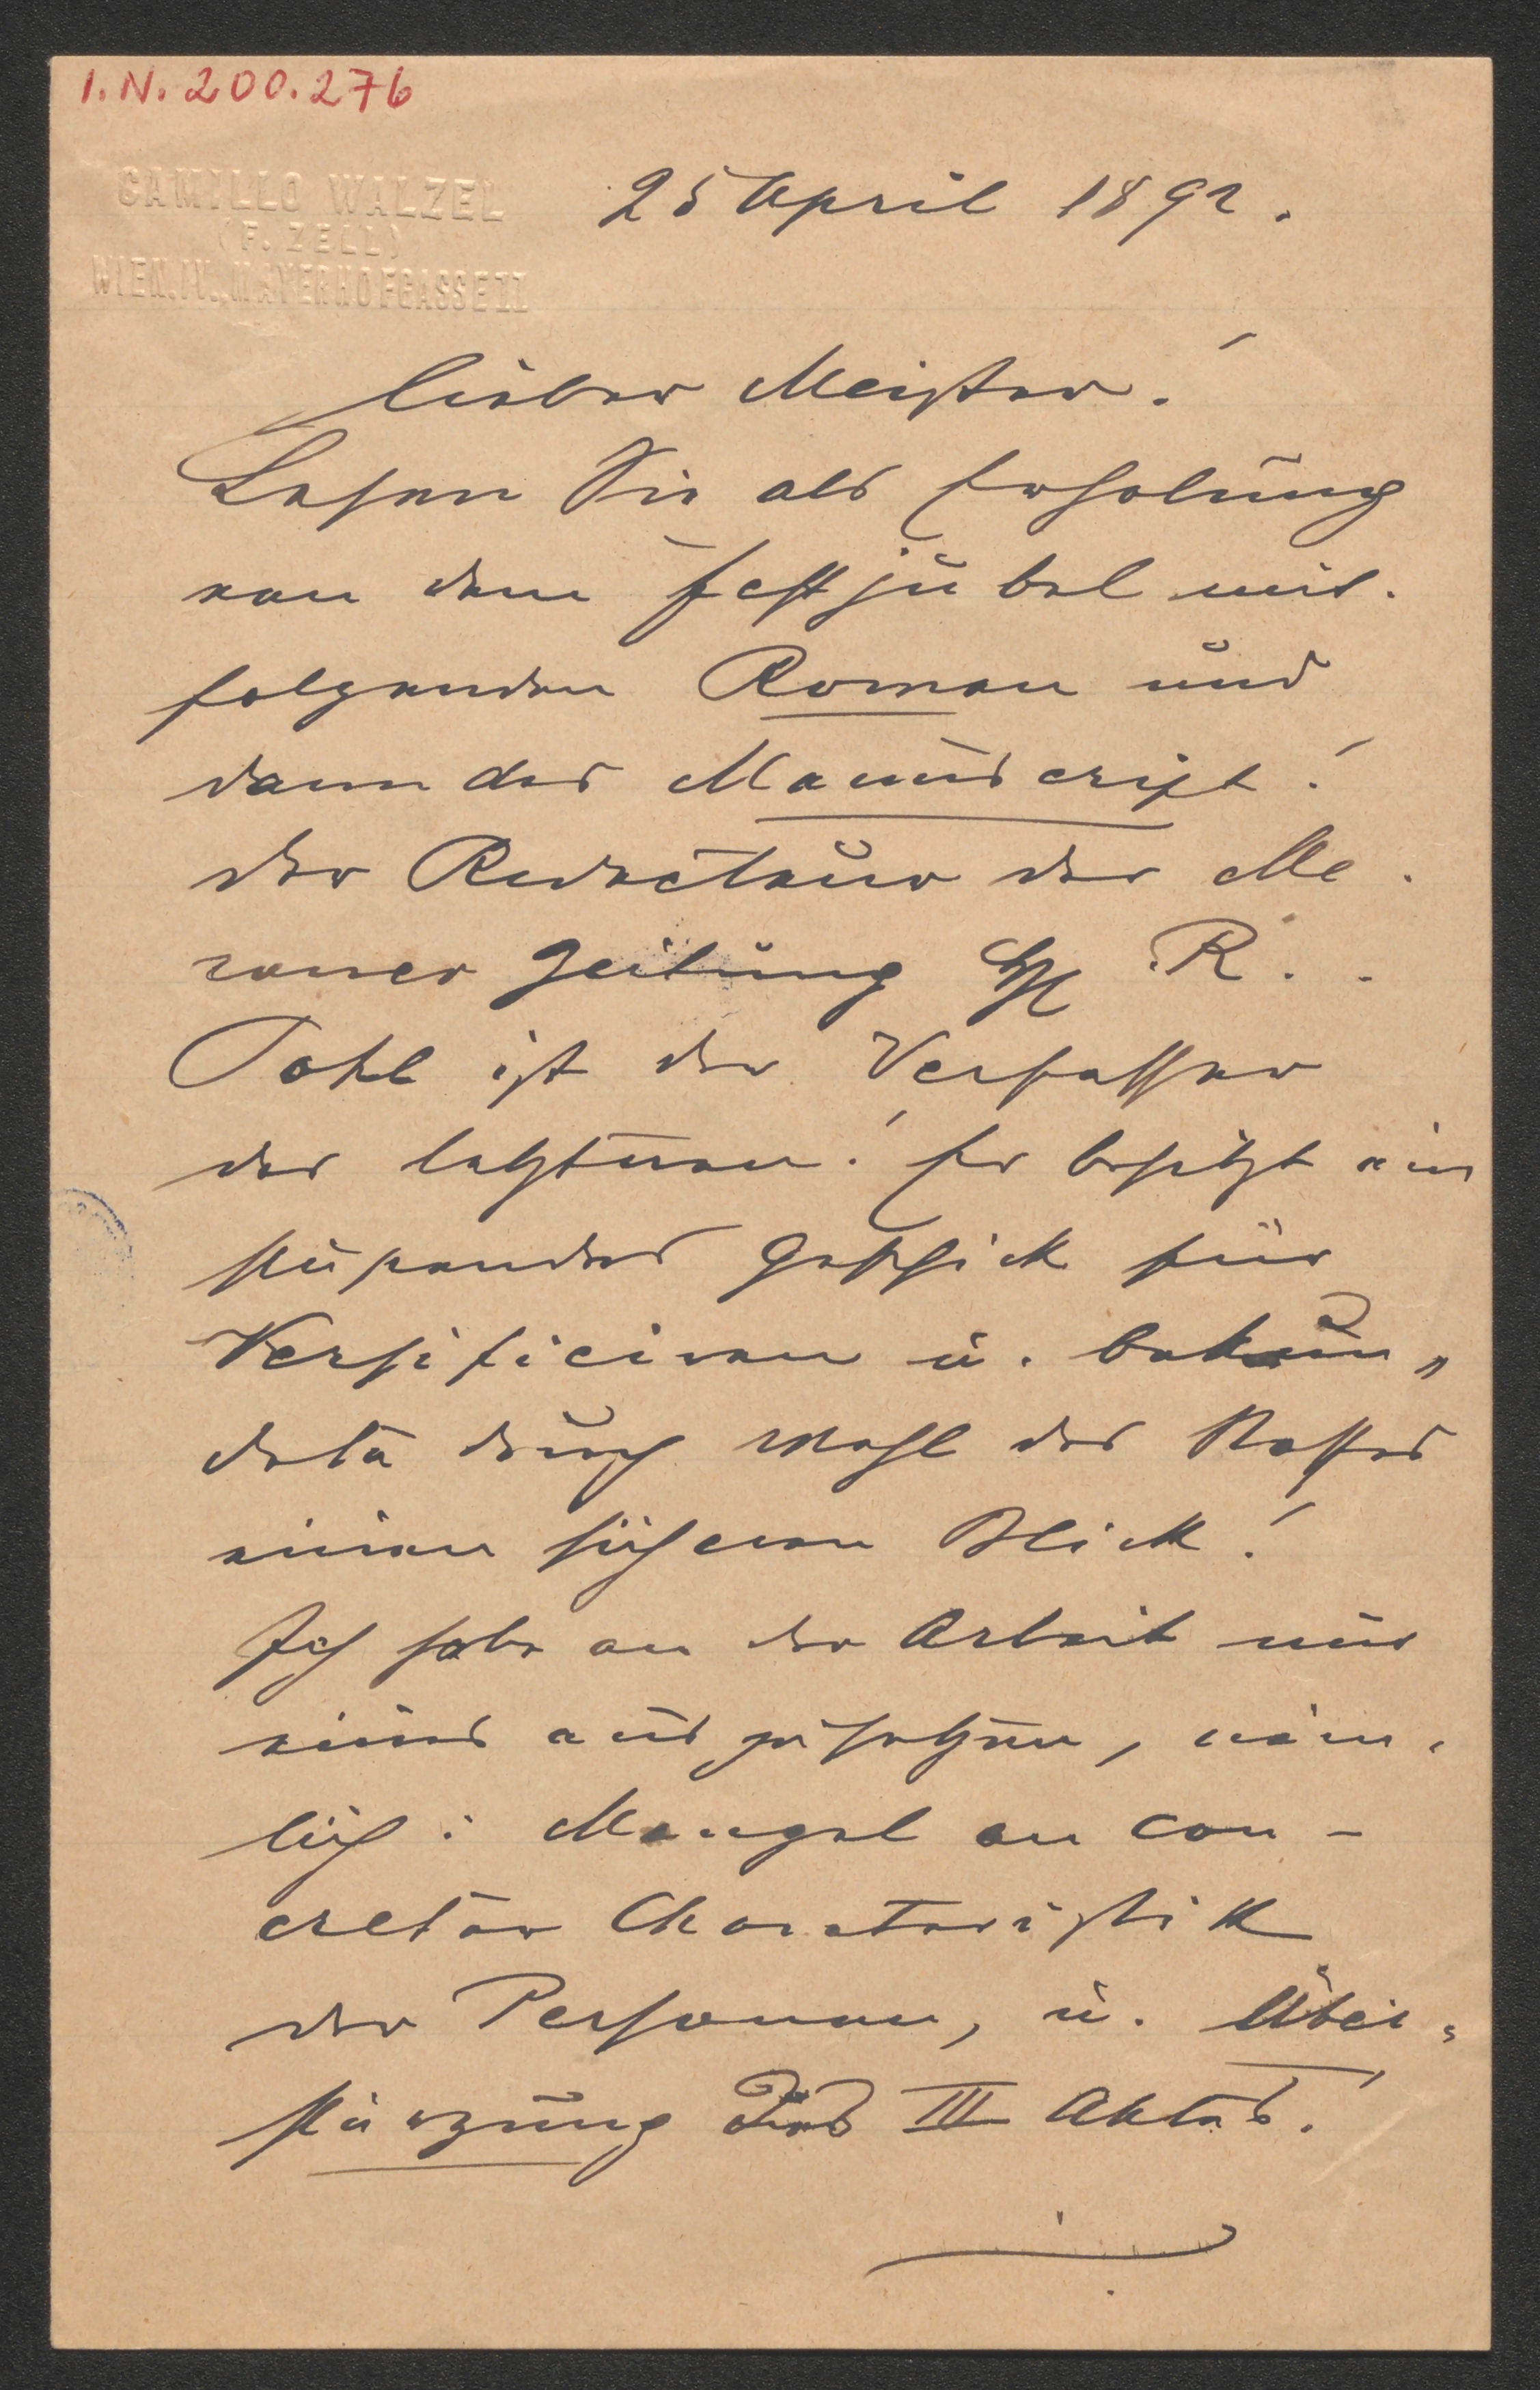 I.N. 200.276
CAMILLO WALZEL
(F. ZELL)
WIEN, IV., MAYERHOFGASSE 11
25 April 1892.
Lieber Meister!
Lesen Sie als Erholung
von dem Festjubel mit-
folgenden Roman und
dann das Manuscript!
Der Redacteur der Me-
raner Zeitung H R.
Pohl ist der Verfasser
des letzteren! Er besitzt ein
stupendes Geschick für
Versificiren u. bekun„
dete durch Wahl des Stoffes
einen sicheren Blick!
Ich habe an der Arbeit nur
eines auszusetzen, näm-
lich: Mangel an con-
creter Charakteristik
der Personen, u. Über-
stürzung des III Aktes!